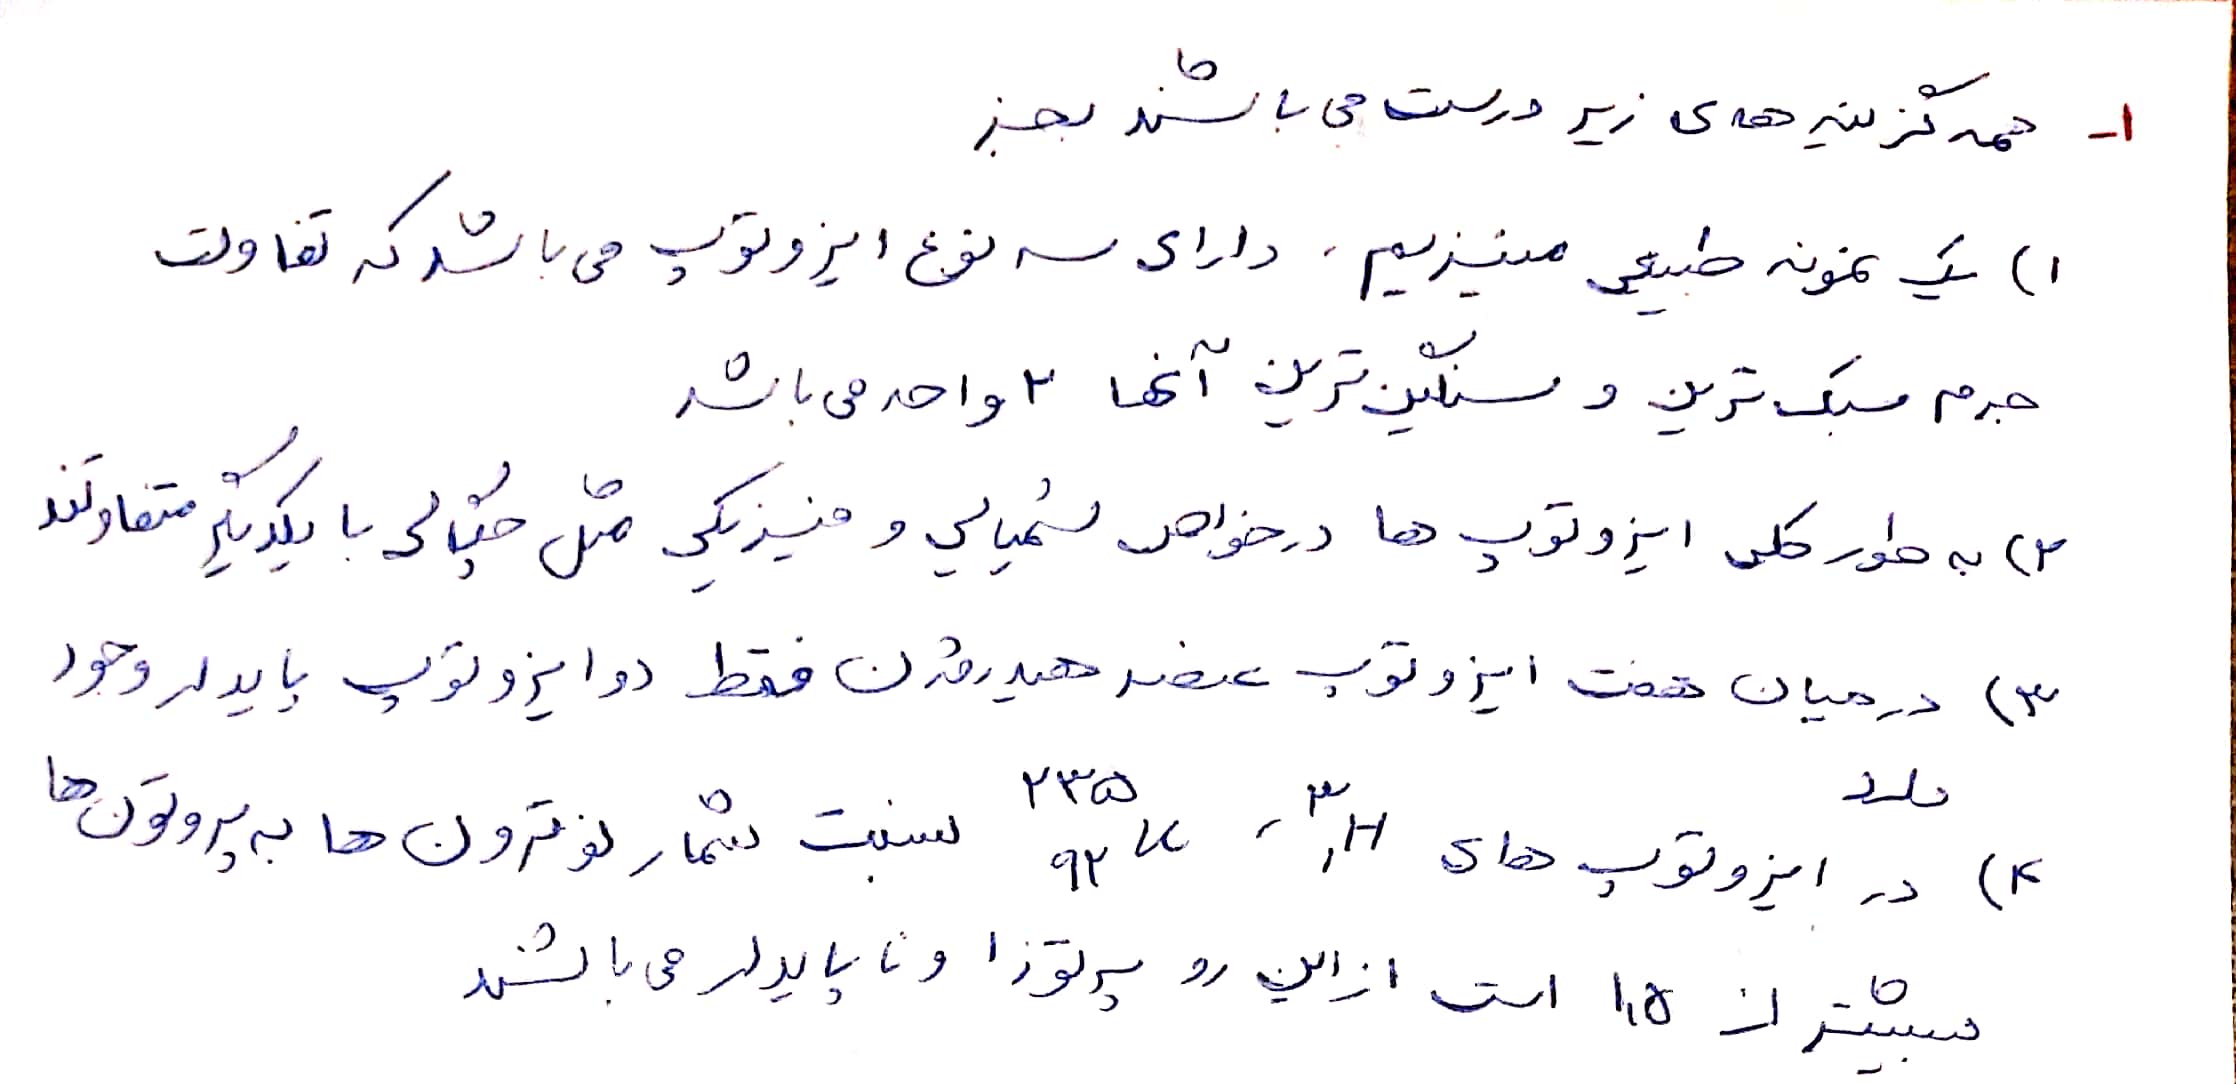 ۱- همه گزینه های زیر درست می باشند بجز
۱) یک نمونه طبیعی منیزیم، دارای سه نوع ایزوتوپ می باشد که تفاوت
جرم سبک ترین و سنگین ترین آنها ۲ واحد می باشد
۲) به طور کلی ایزوتوپ ها در خواص شیمیایی و فیزیکی مثل چگالی با یکدیگر متفاوتند
۳) در میان هفت ایزوتوپ عنصر هیدروژن فقط دو ایزوتوپ پایدار وجود
دارد
۴) در ایزوتوپ های ³₁H ، ²³⁵₉₂U نسبت شمار نوترون ها به پروتون ها
بیشتر از ۱٫۵ است از این رو پرتوزا و ناپایدار می باشند